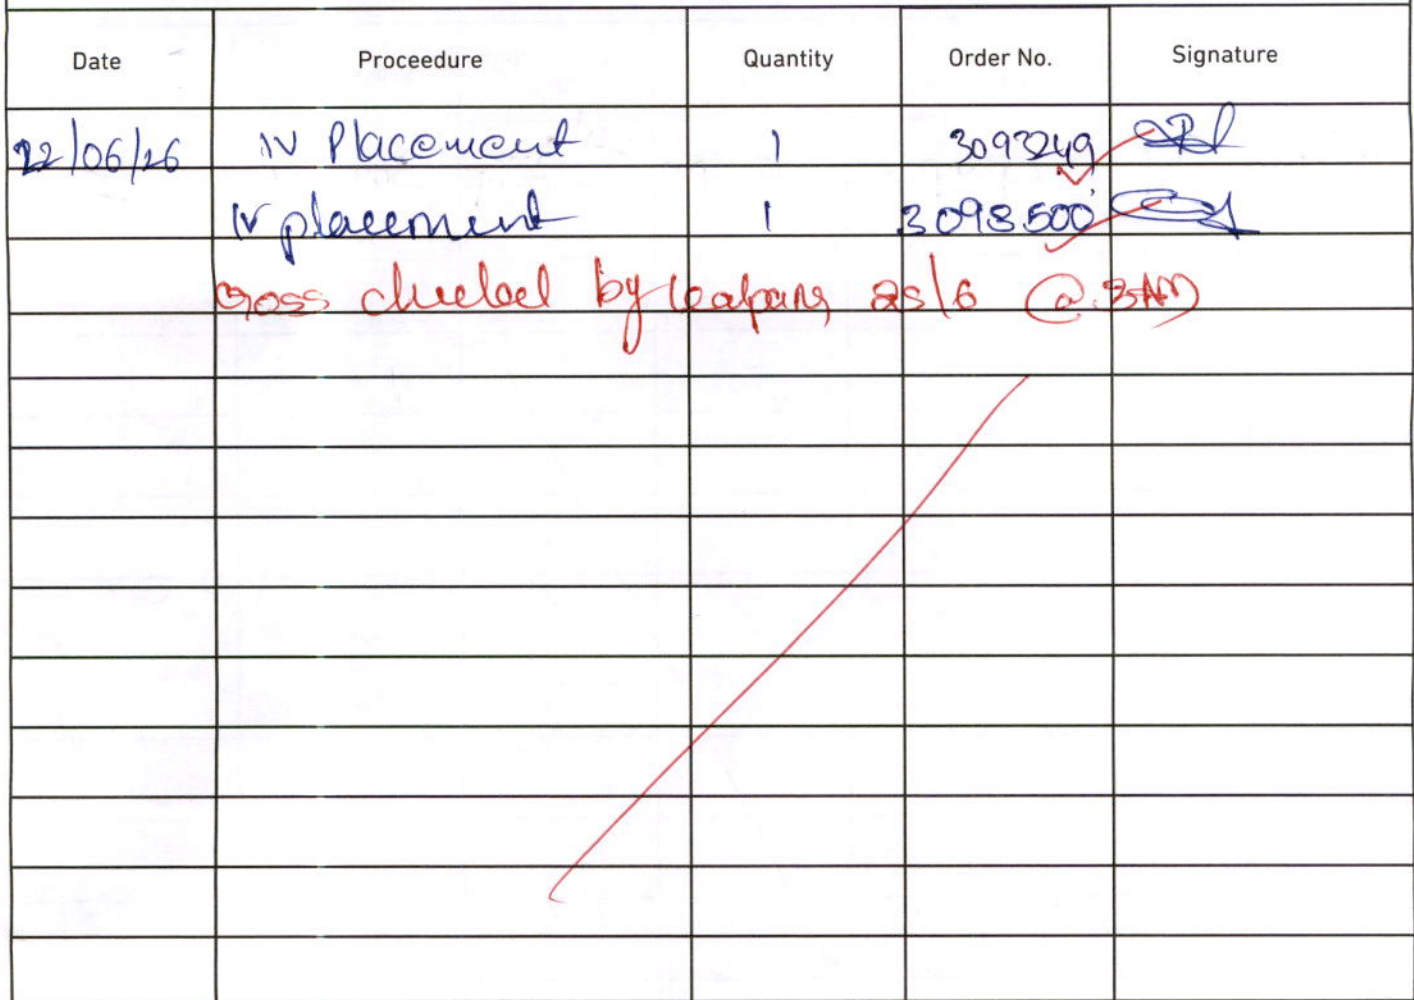 Date Proceedure Quantity Order No. Signature
22/06/26 IV Placement 1 3093249
IV placement 1 3093500
cross checked by 25/6 @ 3AM